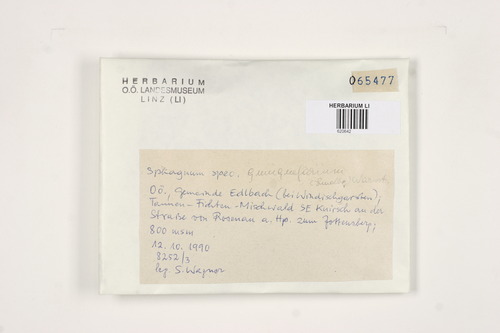 HERBARIUM
O.Ö. LANDESMUSEUM
LINZ (LI)
065477
HERBARIUM LI
Sphagnum spec. quinquefarium
OÖ., Gemeinde Edlbach (bei Windischgarsten),
Tannen-Fichten-Mischwald SE an der
Straße von Rosenau a. Hp. zum
800 msm
12. 10. 1990
8252/3
leg. S. Wagner